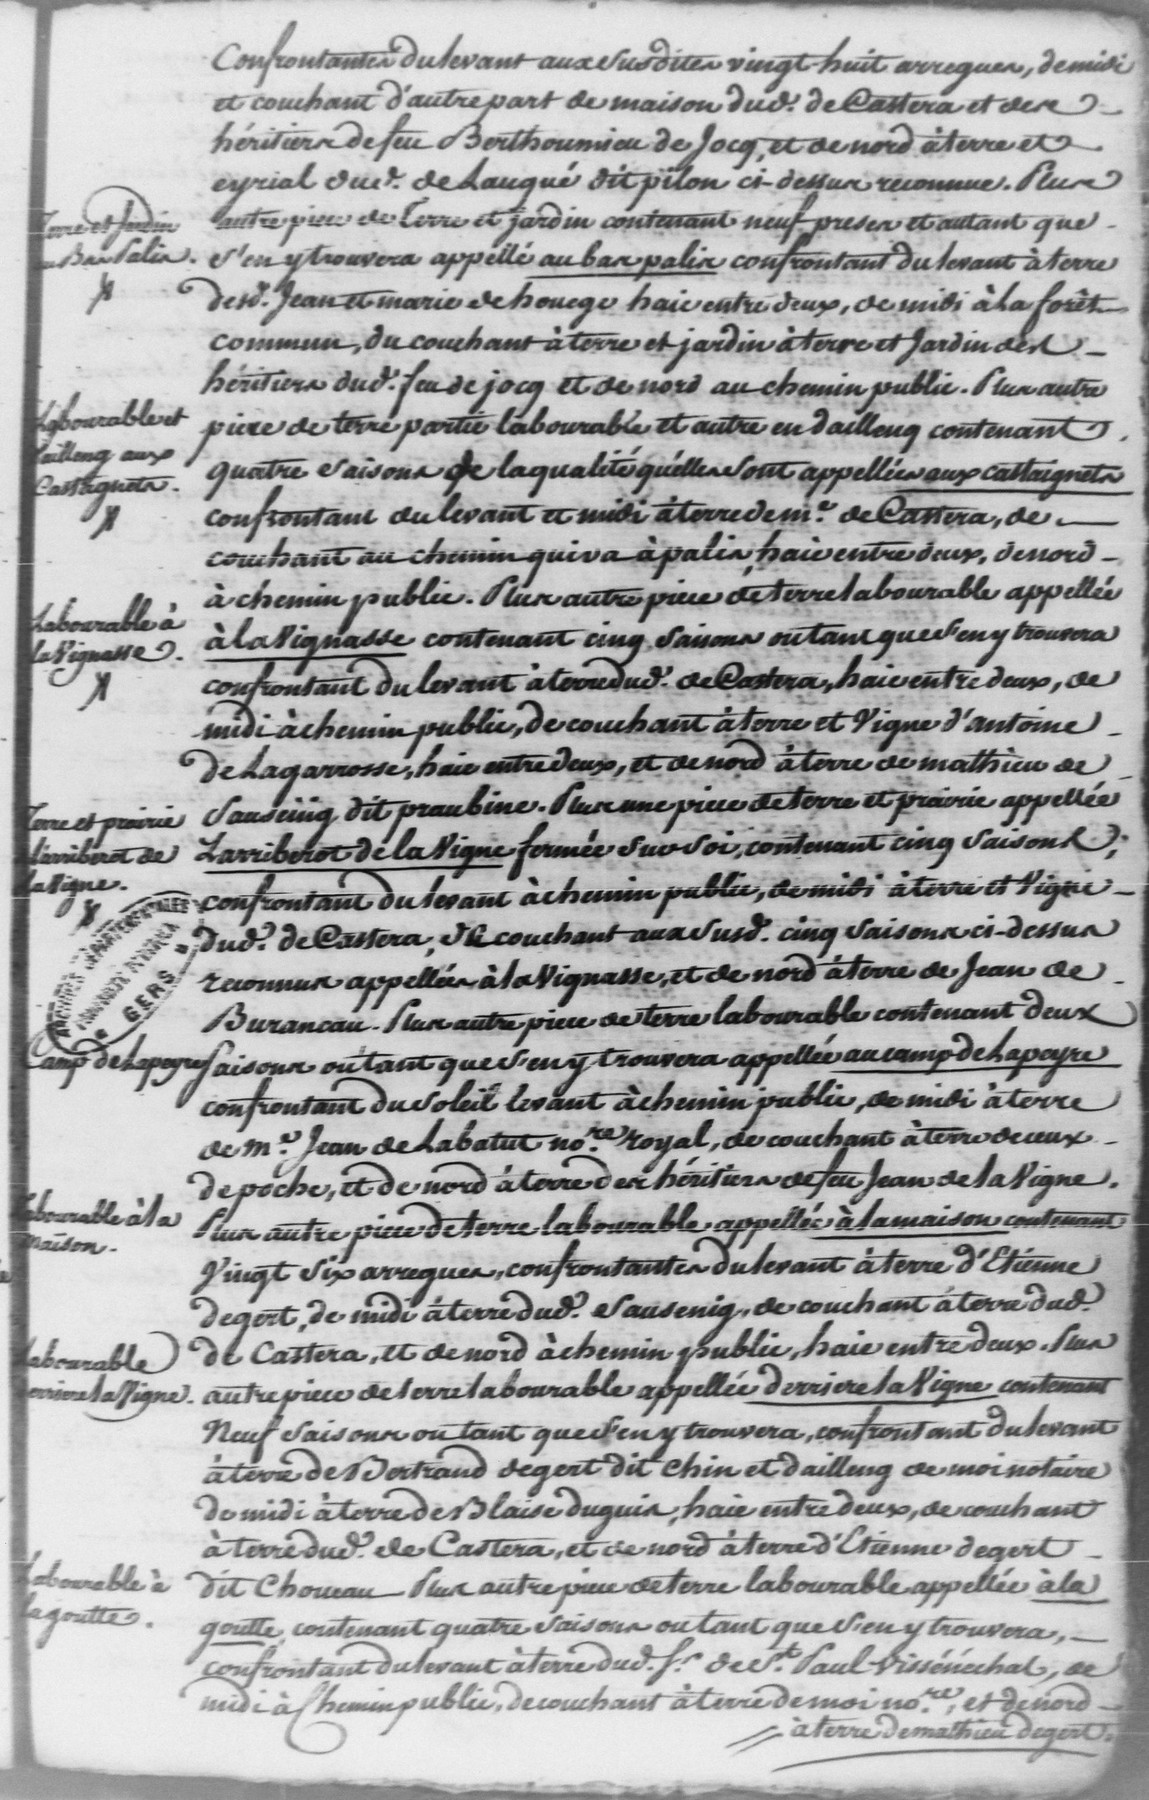 Confrontantes du levant aux susdites vingt-huit arregues, de midi
et couchant d'autre part de maison dud. de Castera et des
héritiers de feu Berthoumieu de Jocq, et de nord à terre et
eyrial dud. de Lauqué dit pilon ci-dessus reconnue. Plus
Terre et Jardin
au Bas Palis.
autre piece de Terre et jardin contenant neuf preses et autant que
s'en y trouvera appellé au bas palis confrontant du levant à terre
desd. Jean et marie dehouege haie entre deux, de midi à la forêt
commun, du couchant à terre et jardin à terre et Jardin des
héritiers dud. feu de jocq et de nord au chemin public. Plus autre
Labourable et
dailleng aux
Castagnets.
piece de terre partie labourable et autre en dailleng contenant
quatre saisons de la qualité qu'elles sont appellées aux castaignets
confrontant du levant et midi à terre de me. de Castera, de
couchant au chemin qui va à palis, haie entre deux, de nord
à chemin public. Plus autre piece de terre labourable appellée
Labourable à
la Vignasse.
à la Vignasse contenant cinq saisons ou tant que s'en y trouvera
confrontant du levant à terre dud. de Castera, haie entre deux, de
midi à chemin public, de couchant à terre et Vigne d'antoine
de Lagarrosse, haie entre deux, et de nord à terre de mathieu de
Terre et prairie
Larriberot de
la Vigne.
dit praubine. Plus une piece de terre et prairie appellée
Larriberot de la Vigne fermée sur soi, contenant cinq saisons,
confrontant du levant à chemin public, de midi à terre et Vigne
dud. de Castera, de couchant aux susd. cinq saisons ci-dessus
reconnus appellées à la Vignasse, et de nord à terre de Jean de
GERS
Burancau. Plus autre piece de terre labourable contenant deux
Camp de Lapeyre
saisons ou tant que s'en y trouvera appellée au camp de Lapeyre
confrontant du soleil levant à chemin public, de midi à terre
de me. Jean de Labatut nore. royal, de couchant à terre de ceux
de poche, et de nord à terre des héritiers de feu Jean de la Vigne.
Labourable à la
maison.
Plus autre piece de terre labourable appellée à la maison contenant
Vingt six arregues, confrontantes du levant à terre d'Etienne
degert, de midi à terre dud. Sausenig, de couchant à terre dud.
de Castera, et de nord à chemin public, haie entre deux. Plus
Labourable
derriere la Vigne.
autre piece de terre labourable appellée derriere la Vigne contenant
Neuf saisons ou tant que s'en y trouvera, confrontant du levant
à terre de Bertrand degert dit chin et dailleng de moi notaire
de midi à terre de Blaise duguis, haie entre deux, de couchant
à terre dud. de Castera, et de nord à terre d'Etienne degert
Labourable à
la goutte.
dit Choueau Plus autre piece de terre labourable appellée à la
goutte, contenant quatre saisons ou tant que s'en y trouvera,
confrontant du levant à terre dud. sr. de St. Paul Vissénéchal, de
midi à Chemin public, de couchant à terre de moi nore., et de nord
à terre de mathieu degert.